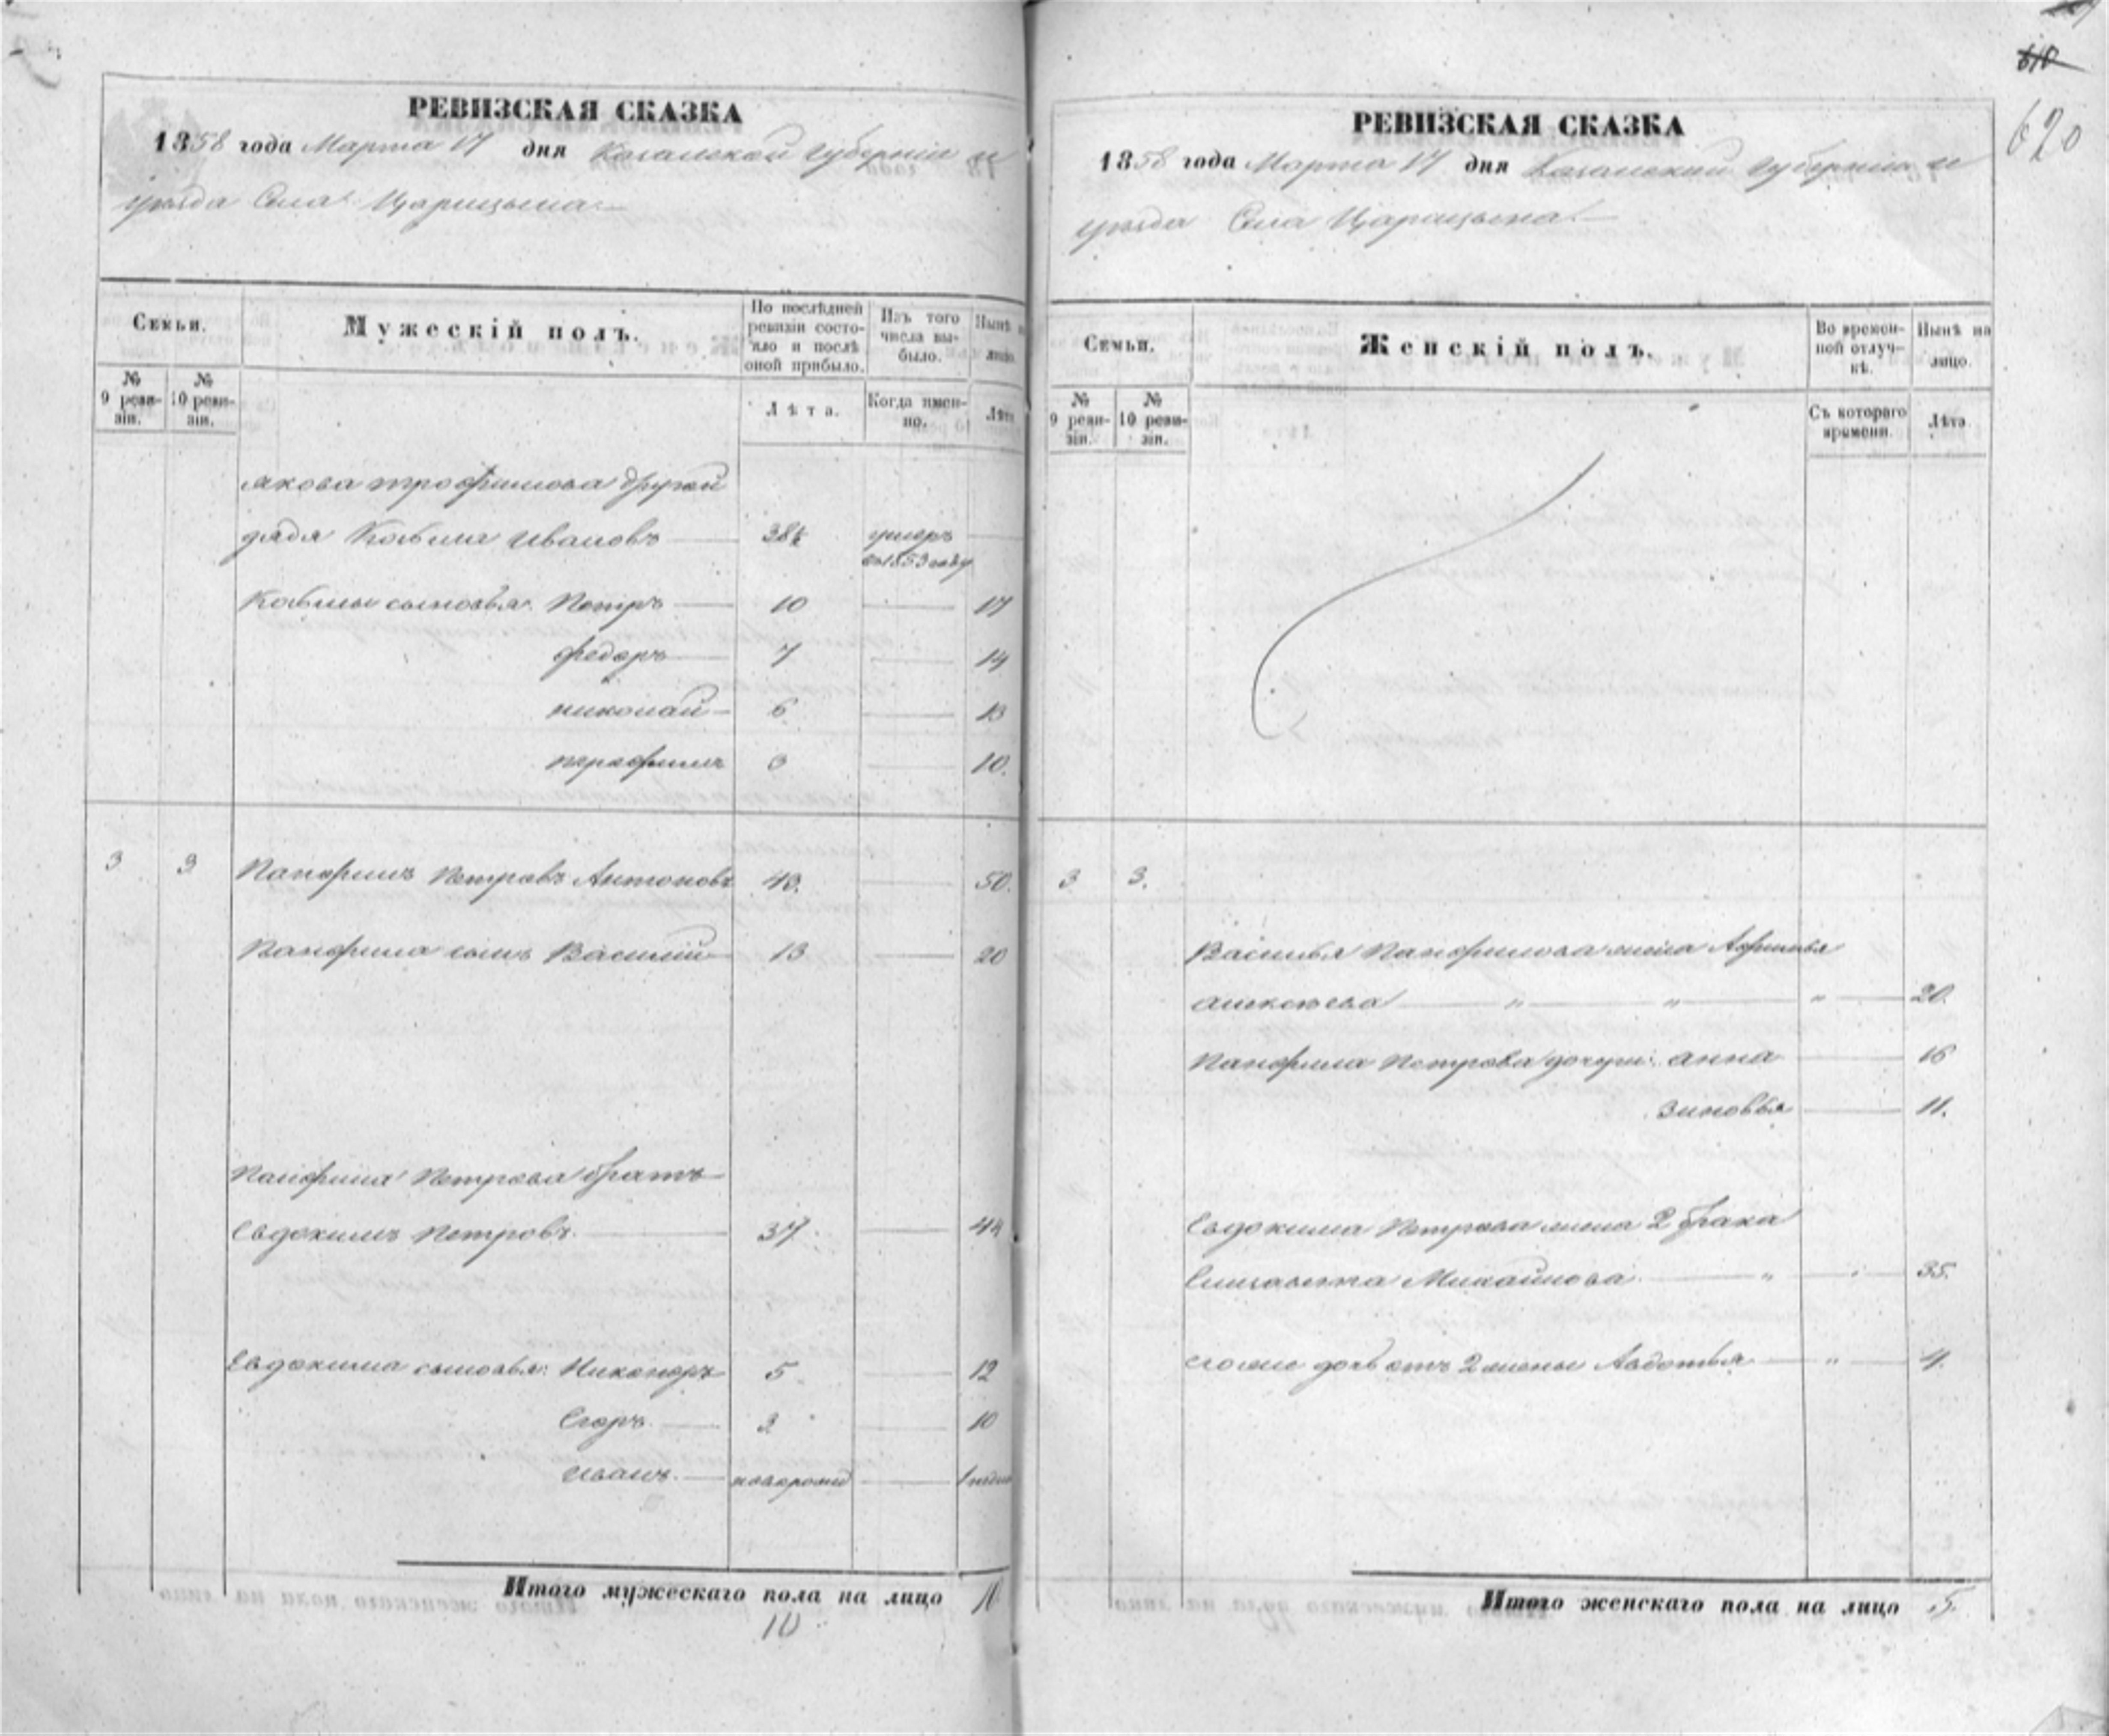 РЕВИЗСКАЯ СКАЗКА
1858 года Марта 17 дня Казанской губернии и
уезда Села Царицына
Семьи.
Мужескій полъ.
По послѣдней ревизіи состояло и послѣ оной прибыло.
Изъ того числа выбыло.
Нынѣ на лицо.
№ 9 ревизіи.
№ 10 ревизіи.
Лѣта.
Когда именно.
Лѣта
якова трофимова другой
дядя Козьма Ивановъ 38 умеръ
въ 1853 году
Козьмы сыновья: Петръ 10 17
федоръ 7 14
николай 6 13
3 10.
3 3 Панфилъ Петровъ Антоновъ 43. 50.
Панфила сынъ Василій 13 20
Панфила Петрова братъ
Евдокимъ Петровъ 37 44
Евдокима сыновья: Никоноръ 5 12
Егоръ 3 10
иванъ новорожд
Итого мужескаго пола на лицо
10
620
РЕВИЗСКАЯ СКАЗКА
1858 года Марта 17 дня Казанской губерніи и
уезда Села Царицына
Семьи.
Женскій полъ.
Во временной отлучкѣ.
Нынѣ на лицо.
№ 9 ревизіи.
№ 10 ревизіи.
Съ котораго времени.
Лѣта
3 3.
Василья Панфилова жена Афимья
алексѣева " " " 20.
Панфила Петрова дочери: анна 16
зиновья 11.
Евдокима Петрова жена 2 брака
Елизавета Михайлова " " 35.
его же дочь отъ 2 жены Авдотья " 4.
Итого женскаго пола на лицо 5.